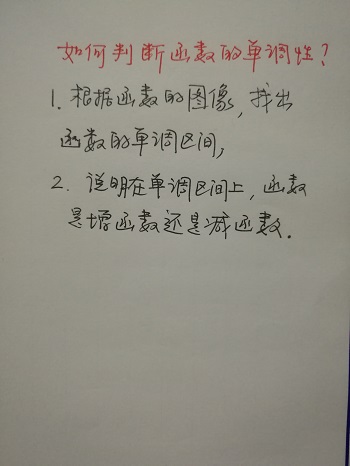 如何判断函数的单调性？
1. 根据函数的图像，找出
函数的单调区间，
2. 说明在单调区间上，函数
是增函数还是减函数.